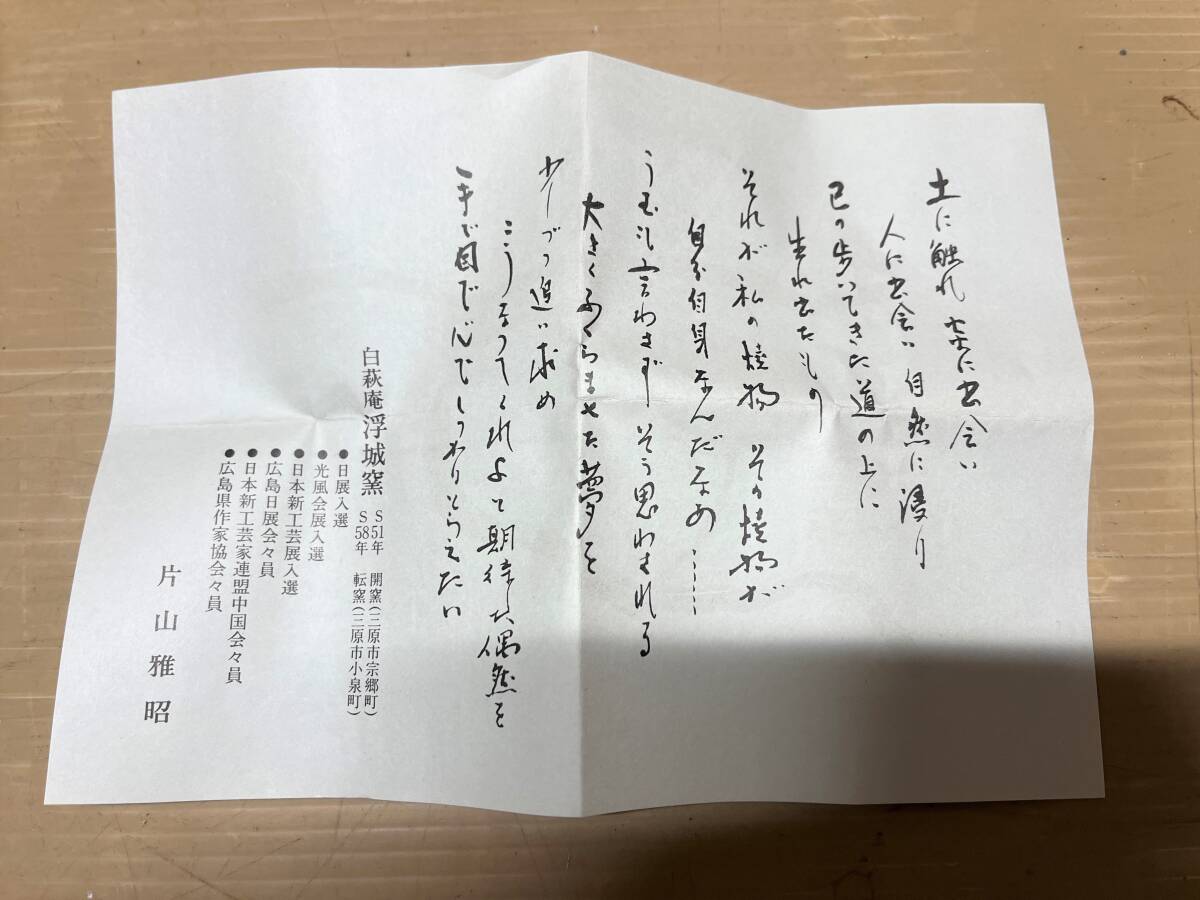 土に触れ 炎に出会い
人に出会い 自然に浸り
己の歩いてきた道の上に
生れ出たもの
それが私の焼物 その焼物が
自分自身なんだなあ……
うむも言わさず そう思わされる
大きくふくらませた夢を
少しづつ追い求め
こうなってくれよと期待した偶然を
手で目で心でしっかりとらえたい
白萩庵 浮城窯 S51年 開窯(三原市宗郷町)
S58年 転窯(三原市小泉町)
●日展入選
●光風会展入選
●日本新工芸展入選
●広島日展会々員
●日本新工芸家連盟中国会々員
●広島県作家協会々員
片山雅昭